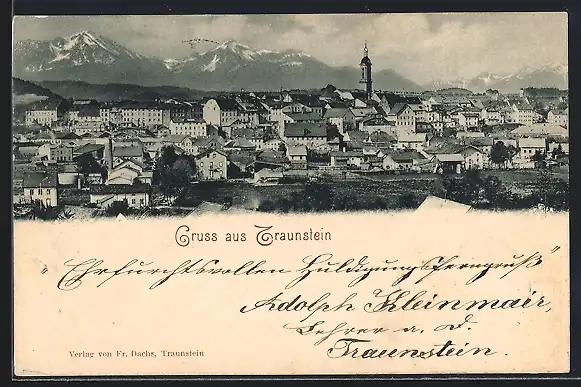 Gruss aus Traunstein
"Ehrfurchtsvollen Huldigungsferngruß"
Adolph Kleinmair,
Lehrer a. D.
Traunstein.
Verlag von Fr. Dachs, Traunstein